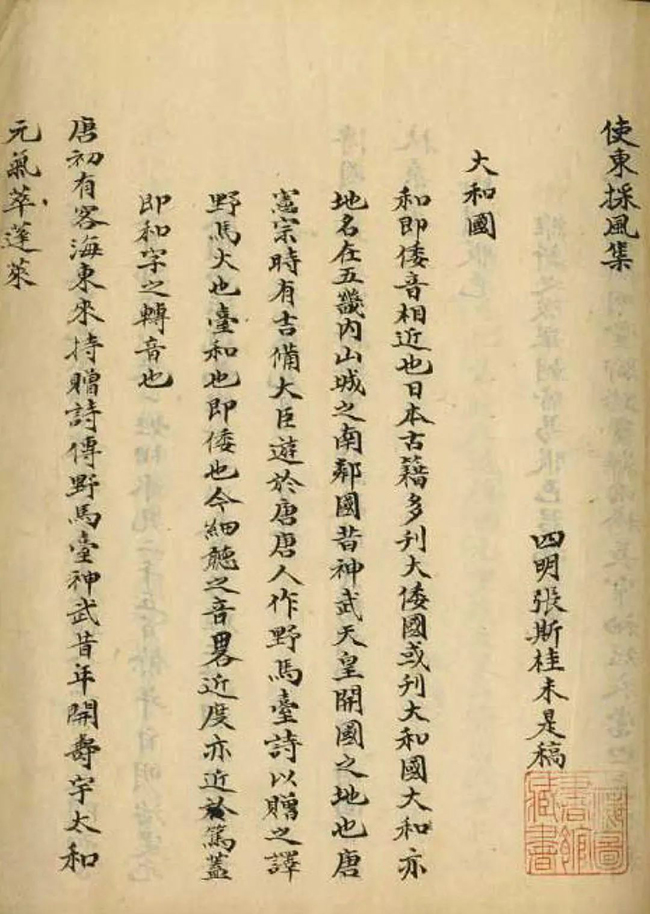 使東採風集
四明張斯桂未是稿
大和國
和即倭音相近也日本古籍多刊大倭國或刊大和國大和亦
地名在五畿內山城之南鄰國昔神武天皇開國之地也唐
憲宗時有吉備大臣遊於唐唐人作野馬臺詩以贈之譯
野馬大也臺和也即倭也今細聽之音畧近度亦近於篤蓋
即和字之轉音也
唐初有客海東來持贈詩傳野馬臺神武昔年開壽宇太和
元氣萃蓬萊